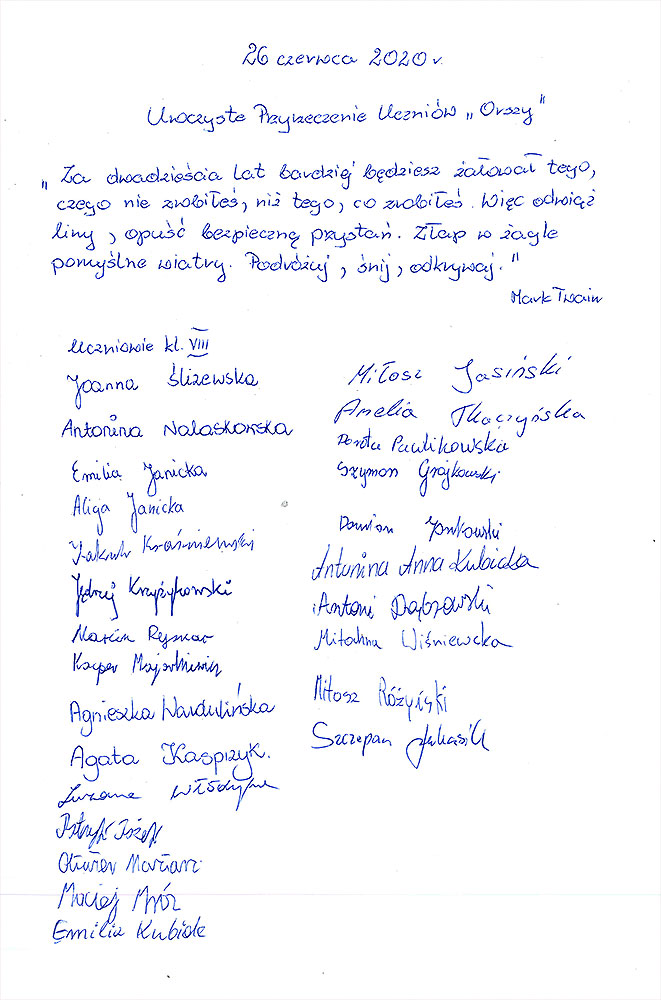 26 czerwca 2020 r.
Uroczyste Przyrzeczenie Uczniów „Orszy"
„Za dwadzieścia lat bardziej będziesz żałował tego,
czego nie zrobiłeś, niż tego, co zrobiłeś. Więc odwiąż
liny, opuść bezpieczną przystań. Złap w żagle
pomyślne wiatry. Podróżuj, śnij, odkrywaj."
Mark Twain
Uczniowie kl. VIII
Joanna Śliżewska
Antonina Nalaskowska
Emilia Janicka
Alicja Janicka
Jakub Kraśniewski
Jędrzej Krzyżykowski
Marcin
Kacper
Agnieszka Wardulińska
Agata Kasprzyk.
Zuzanna
Patryk Józef
Oliwier Marian
Maciej Mróz
Emilia Kubicka
Miłosz Jasiński
Amelia Tkaczyńska
Dorota Pawlikowska
Szymon Grajkowski
Damian Jankowski
Antonina Anna Kubicka
Antoni Dąbrowski
Wiśniewska
Miłosz Różyński
Szczepan Łukasik